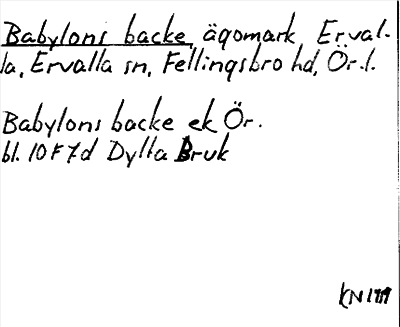 Babylons backe, ägomark, Erval-
la, Ervalla sn, Fellingsbro hd, Ör. l.
Babylons backe ek Ör.
bl. 10 F 7d Dylta Bruk